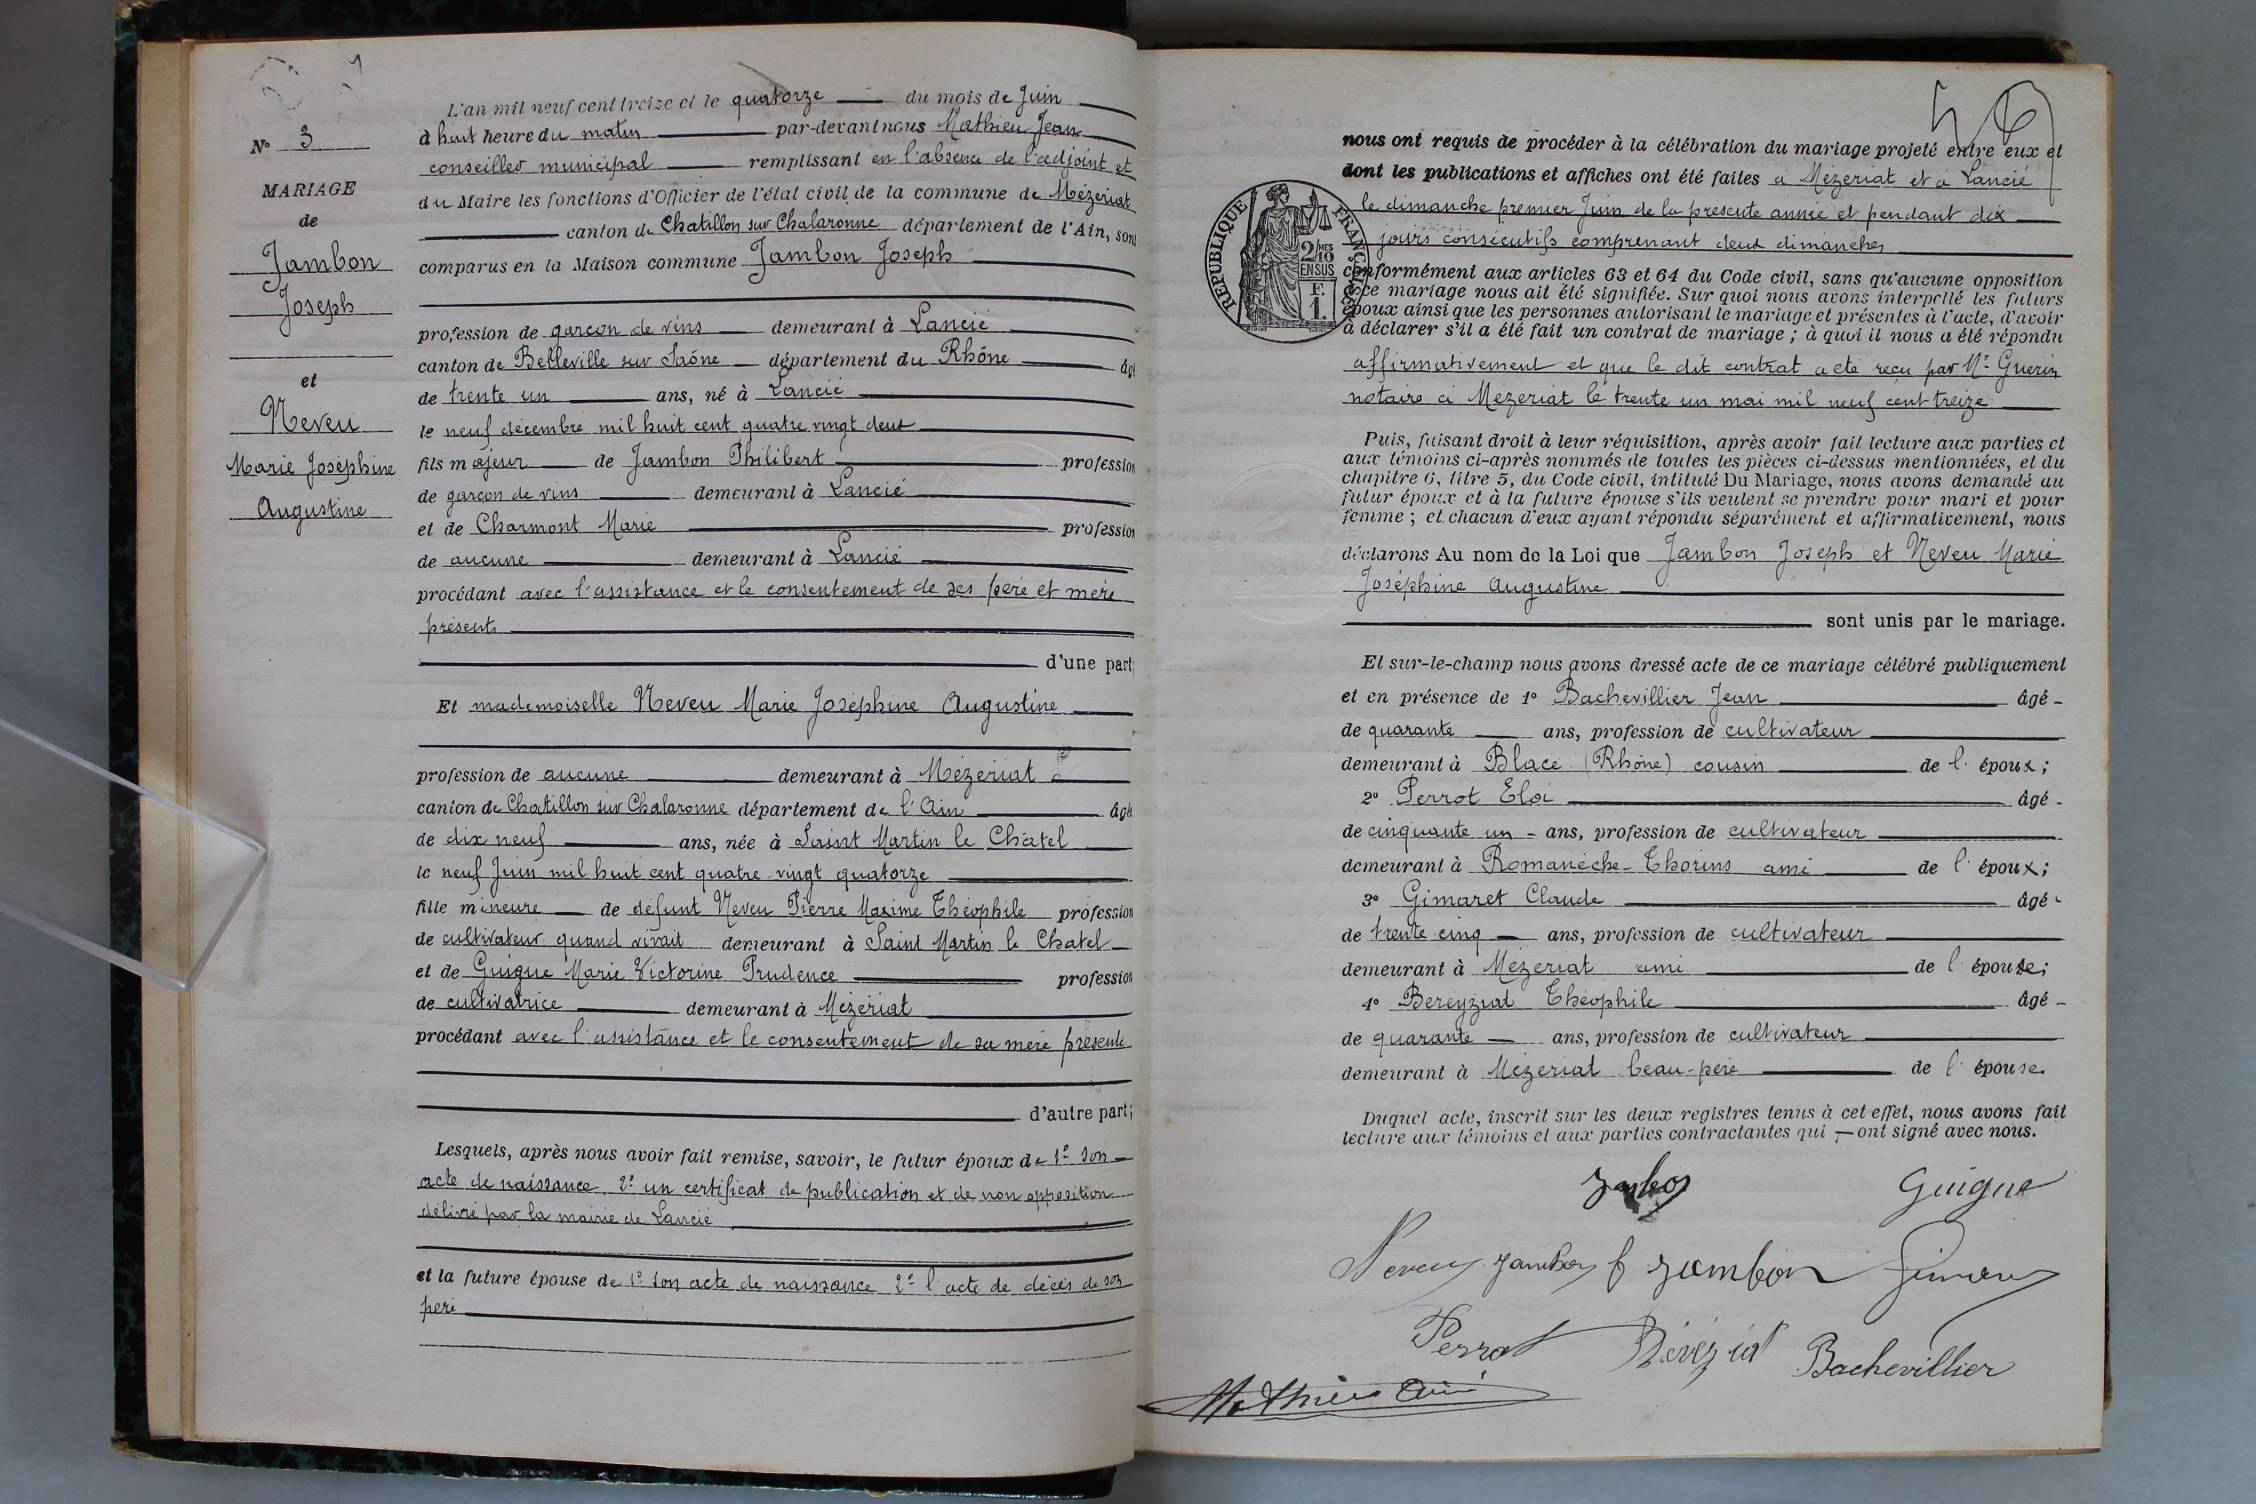 N° 3
MARIAGE
de
Jambon
Joseph
et
Neveu
Marie Joséphine
Augustine
L'an mil neuf cent treize et le quatorze du mois de Juin
à huit heure du matin par-devant nous Mathieu Jean
conseiller municipal remplissant en l'absence de l'adjoint et
du Maire les fonctions d'Officier de l'état civil de la commune de Mézériat
canton de Chatillon sur Chalaronne département de l'Ain, sont
comparus en la Maison commune Jambon Joseph
profession de garçon de vins demeurant à Lancié
canton de Belleville sur Saône département du Rhône âgé
de trente un ans, né à Lancié
le neuf décembre mil huit cent quatre vingt deux
fils majeur de Jambon Philibert profession
de garçon de vins demeurant à Lancié
et de Charmont Marie profession
de aucune demeurant à Lancié
procédant avec l'assistance et le consentement de ses père et mère
présents
d'une part;
Et mademoiselle Neveu Marie Joséphine Augustine
profession de aucune demeurant à Mézériat
canton de Chatillon sur Chalaronne département de l'Ain âgée
de dix neuf ans, née à Saint Martin le Châtel
le neuf Juin mil huit cent quatre-vingt quatorze
fille mineure de défunt Neveu Pierre Maxime Théophile profession
de cultivateur quand vivait demeurant à Saint Martin le Chatel
et de Guigue Marie Victorine Prudence profession
de cultivatrice demeurant à Mézériat
procédant avec l'assistance et le consentement de sa mère présente
d'autre part;
Lesquels, après nous avoir fait remise, savoir, le futur époux de 1° son
acte de naissance 2° un certificat de publication et de non opposition
délivré par la mairie de Lancié
et la future épouse de 1° son acte de naissance 2° l'acte de décès de son
père
nous ont requis de procéder à la célébration du mariage projeté entre eux et
dont les publications et affiches ont été faites à Mézériat et à Lancié
le dimanche premier Juin de la présente année et pendant dix
jours consécutifs comprenant deux dimanches
RÉPUBLIQUE FRANÇAISE
2/10 MES
EN SUS
F.
1.
conformément aux articles 63 et 64 du Code civil, sans qu'aucune opposition
à ce mariage nous ait été signifiée. Sur quoi nous avons interpellé les futurs
époux ainsi que les personnes autorisant le mariage et présentes à l'acte, d'avoir
à déclarer s'il a été fait un contrat de mariage ; à quoi il nous a été répondu
affirmativement et que le dit contrat a été reçu par Me Guérin
notaire à Mézériat le trente un mai mil neuf cent treize
Puis, faisant droit à leur réquisition, après avoir fait lecture aux parties et
aux témoins ci-après nommés de toutes les pièces ci-dessus mentionnées, et du
chapitre 6, titre 5, du Code civil, intitulé Du Mariage, nous avons demandé au
futur époux et à la future épouse s'ils veulent se prendre pour mari et pour
femme ; et chacun d'eux ayant répondu séparément et affirmativement, nous
déclarons Au nom de la Loi que Jambon Joseph et Neveu Marie
Joséphine Augustine
sont unis par le mariage.
Et sur-le-champ nous avons dressé acte de ce mariage célébré publiquement
et en présence de 1° Bachevillier Jean âgé
de quarante ans, profession de cultivateur
demeurant à Blacé (Rhône) cousin de l'époux ;
2° Perrot Eloi âgé
de cinquante un ans, profession de cultivateur
demeurant à Romanèche-Thorins ami de l'époux ;
3° Gimaret Claude âgé
de trente cinq ans, profession de cultivateur
demeurant à Mézériat ami de l'épouse ;
4° Béréyziat Théophile âgé
de quarante ans, profession de cultivateur
demeurant à Mézériat beau-père de l'épouse.
Duquel acte, inscrit sur les deux registres tenus à cet effet, nous avons fait
lecture aux témoins et aux parties contractantes qui ont signé avec nous.
Jambon Guigue
Neveu Jambon Jambon
Perrot Béréziat Bachevillier
Mathieu